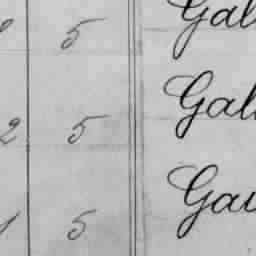 5 Gal
2 5 Gal
1 5 Gau